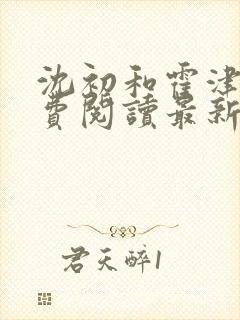 沈初和霍津
費閱讀最新
君天醉1